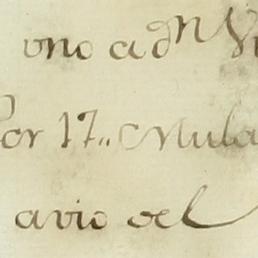 uno a dn
Por 17,, Mula
avio del